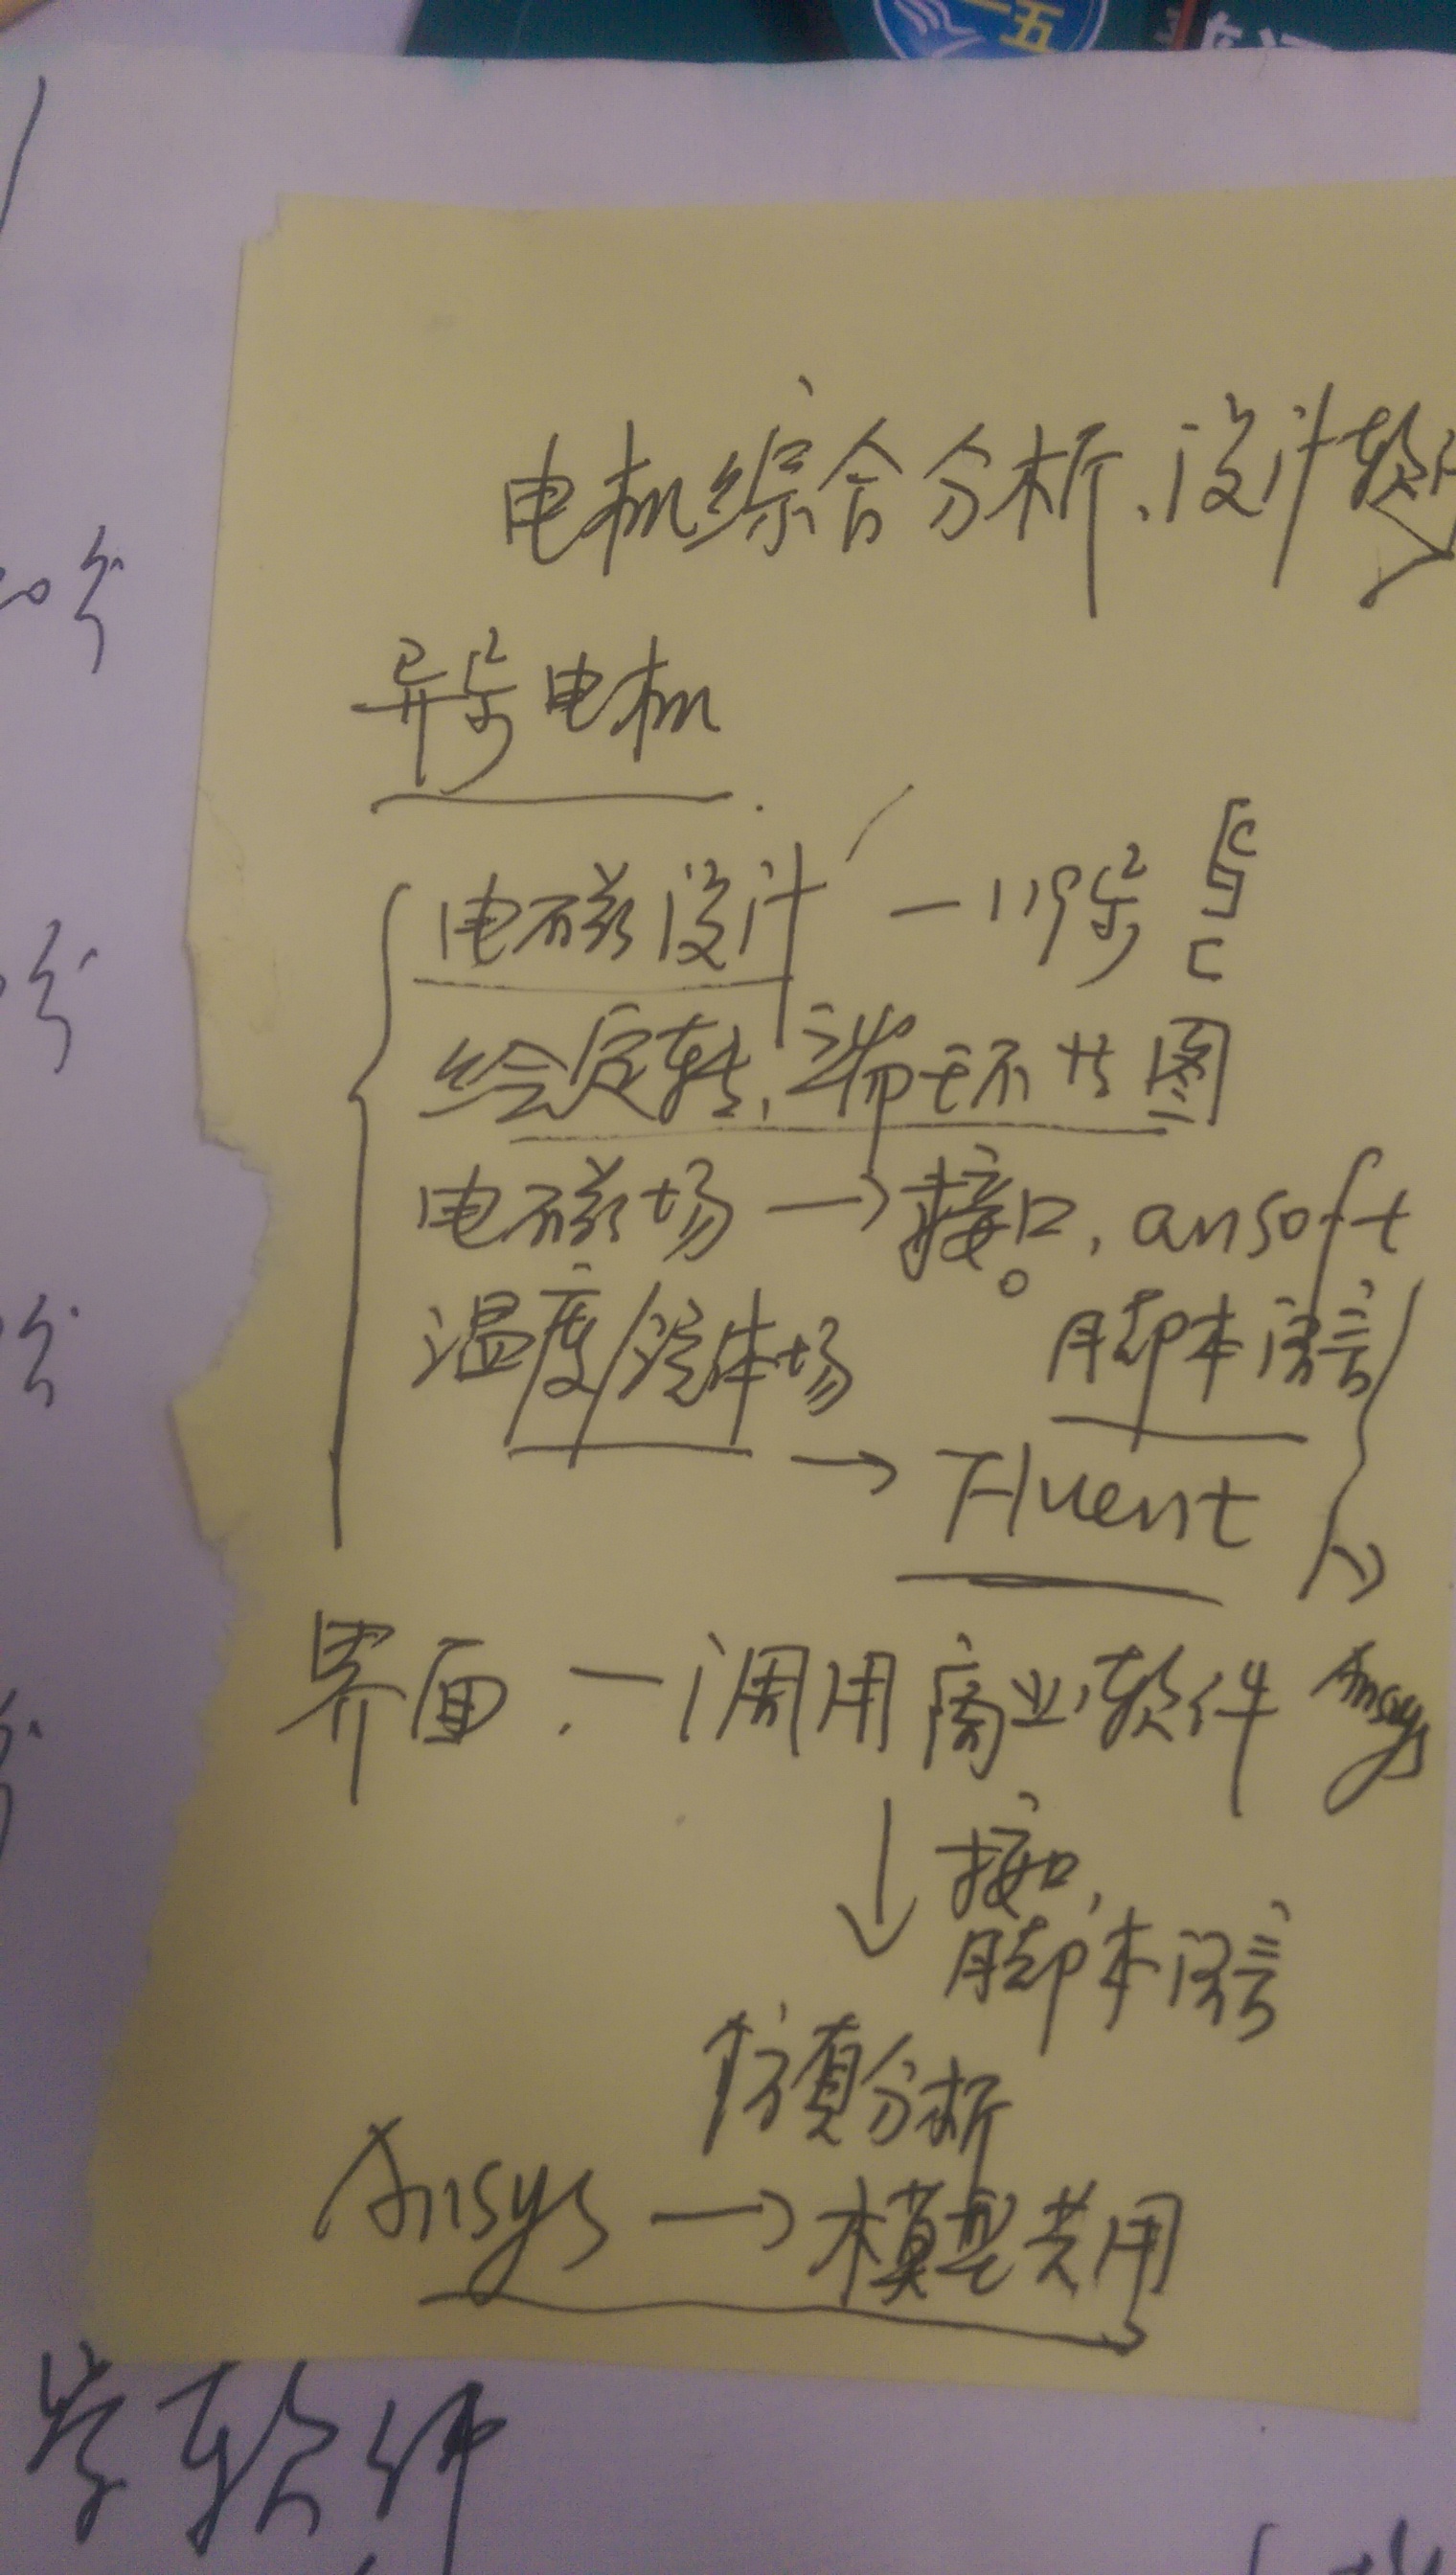 一五
电机综合分析、设计软
异步电机
电磁设计 — 119步
绘定转、端环共图
电磁场 → 接口, ansoft
温度/流体场 脚本语言
→ Fluent
界面. — 调用商业软件 Ansys
接口,
脚本语言
仿真分析
Ansys → 模型共用
学软件